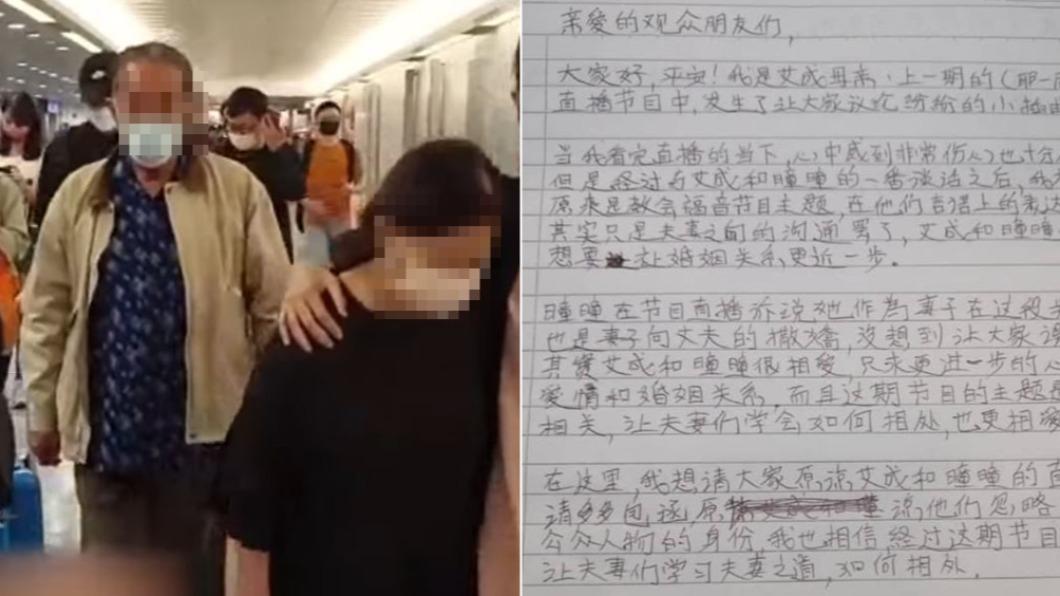 亲爱的观众朋友们,
大家好,平安!我是艾成母亲,上一期的(那一
直播节目中,发生了让大家议论纷纷的小插
当我看完直播的当下,心中感到非常伤心也十分
但是经过与艾成和瞳瞳的一番谈话之后,我
原来是教会福音节目主题,在他们言语上的表
其实只是夫妻之间的沟通罢了,艾成和瞳瞳
想要让婚姻关系更近一步。
瞳瞳在节目直播诉说她作為妻子在这段
也是妻子向丈夫的撒嬌,沒想到让大家误
其實艾成和瞳瞳很相愛,只求更进一步的心
爱情和婚姻关系,而且这期节目的主题
相关,让夫妻们学会如何相处,也更相爱
在这里,我想请大家原谅艾成和瞳瞳的
请多多包涵,原谅他们忽略
公众人物的身份,我也相信经过这期节目
让夫妻们学习夫妻之道,如何相处.